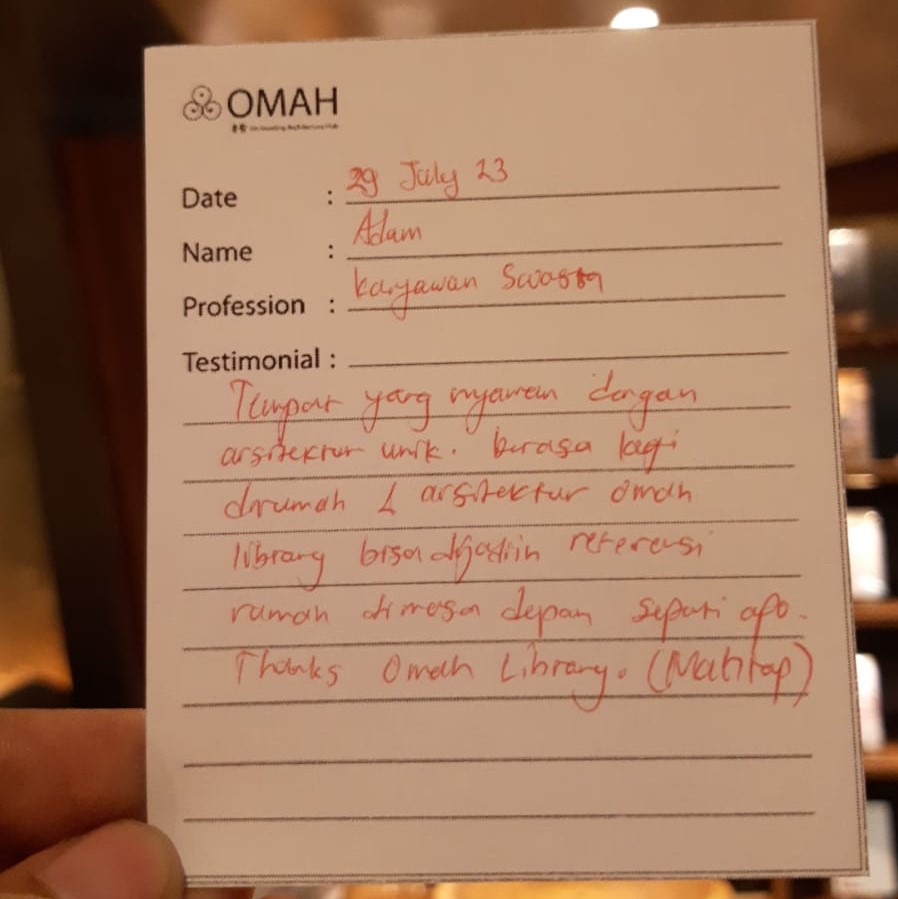 OMAH
Date : 29 July 23
Name : Adam
Profession : karyawan Swasta
Testimonial :
Tempat yang nyaman dengan
arsitektur unik. berasa lagi
dirumah & arsitektur omah
library bisa dijadiin referensi
rumah dimasa depan seperti apa.
Thanks Omah Library. (Mantap)